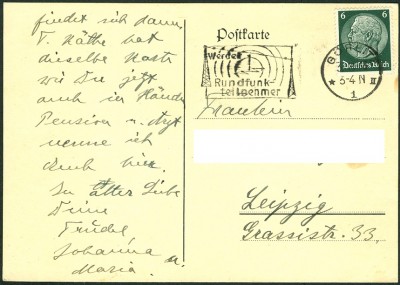 findet sich dann
T. Käthe hat
dieselbe Karte
wie Du jetzt
auch in Händen
Pension u.
nenne ich
auch hier.
In alter Liebe
Deine
Trude
Johanna u.
Maria.
Postkarte
Werdet
Rundfunk-
teilnehmer
6 6
Deutsches Reich
GÖRLITZ
* 5-4 N II
1
Fräulein
Leipzig
Grassistr. 33.